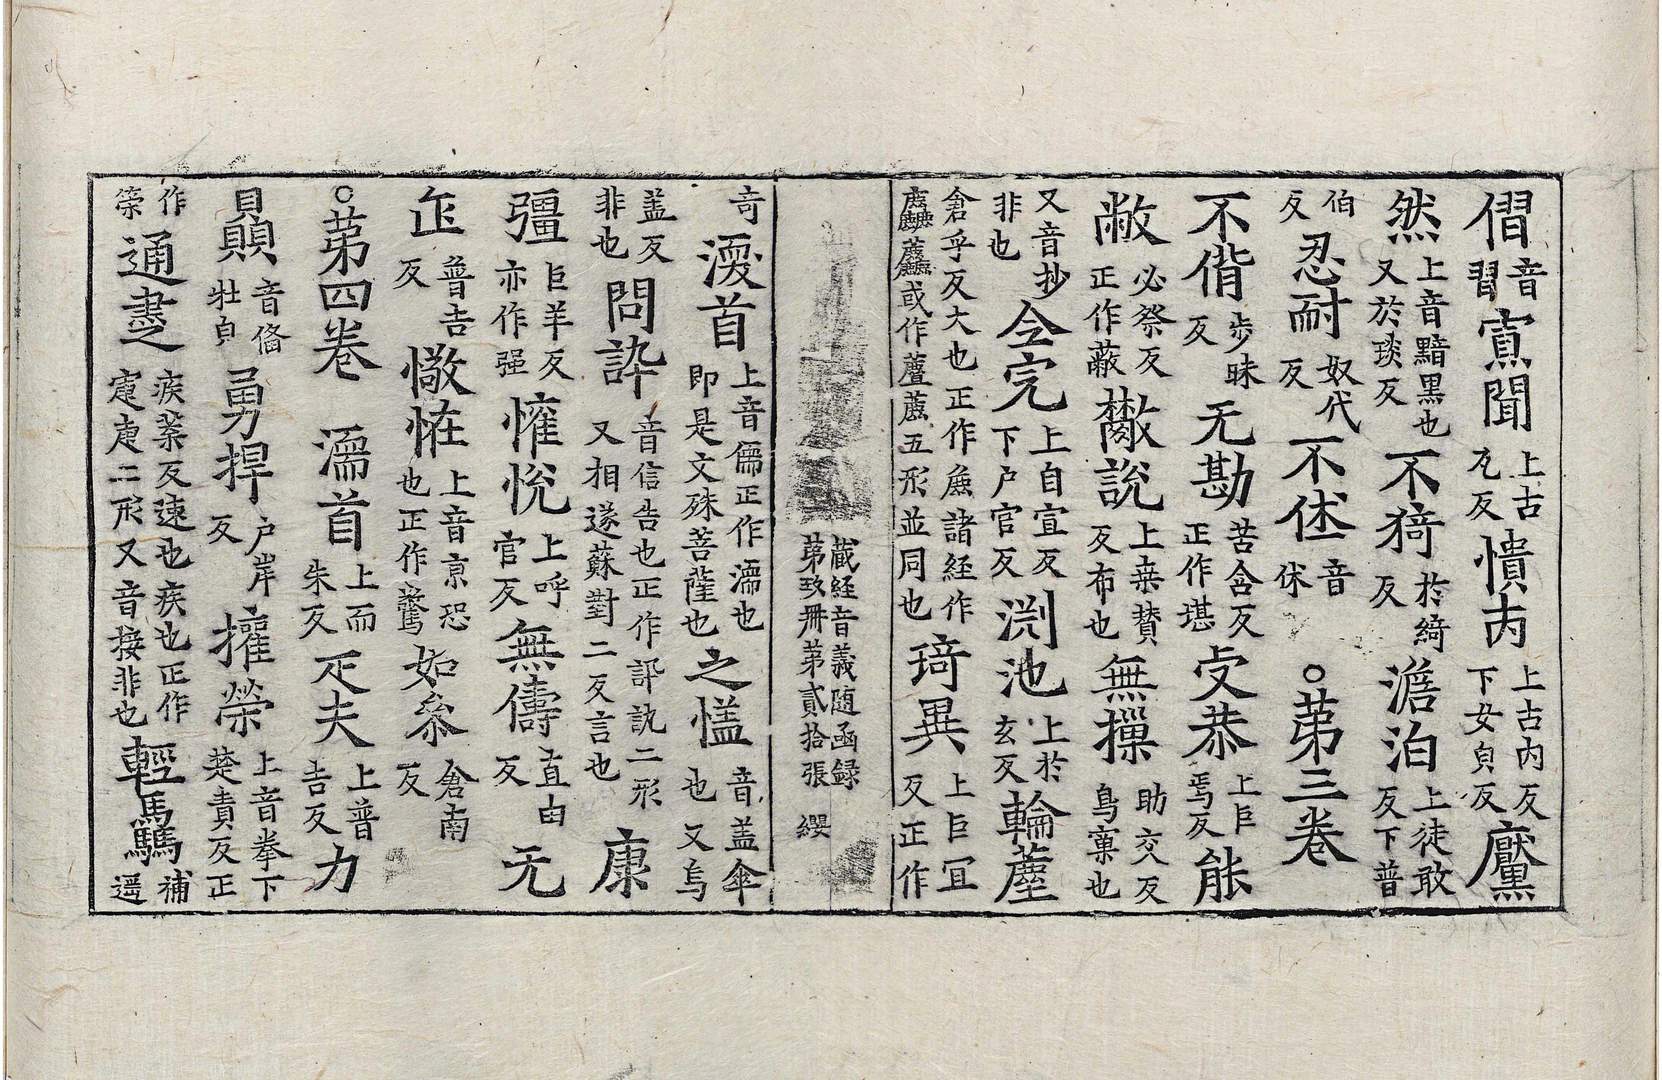 㦄音習寡聞上古瓦反憒内上古内反下女貞反黶
然上音黯黒也又於琰反不猗於綺反澹泊上徒敢反下普
伯反忍耐奴代反不㤜音㤜○苐三卷
不偕步昧反无勘苦含反正作堪受恭上巨焉反能
敝必祭反正作蔽㪚說上桒賛反布也無摷助交反鳥窠也
又音抄非也全完上自宣反下户官反渕池上於玄反輪䕃
倉乎反大也正作麁諸經作麤䴢或作䕃五形並同也琦異上巨冝反正作
藏經音義隨函録
苐玖册苐貳拾張 纓
竒濡首上音儒正作濡也即是文殊菩薩也之㦢音盖傘也又烏
盖反非也問誶音信告也正作訊訙二形又相遂蘇對二反言也康
彊巨羊反亦作强㦜悅上呼官反無儔直由反无
叵普吉反憿恠上音京恐也正作驚如叅倉南反
○苐四卷濡首上而朱反疋夫上普吉反力
贔音俻壮皃勇捍户岸反擢榮上音拳下楚責反正
作筞通疌疾葉反速也疾也正作寁疌二形又音接非也輕驫補遥